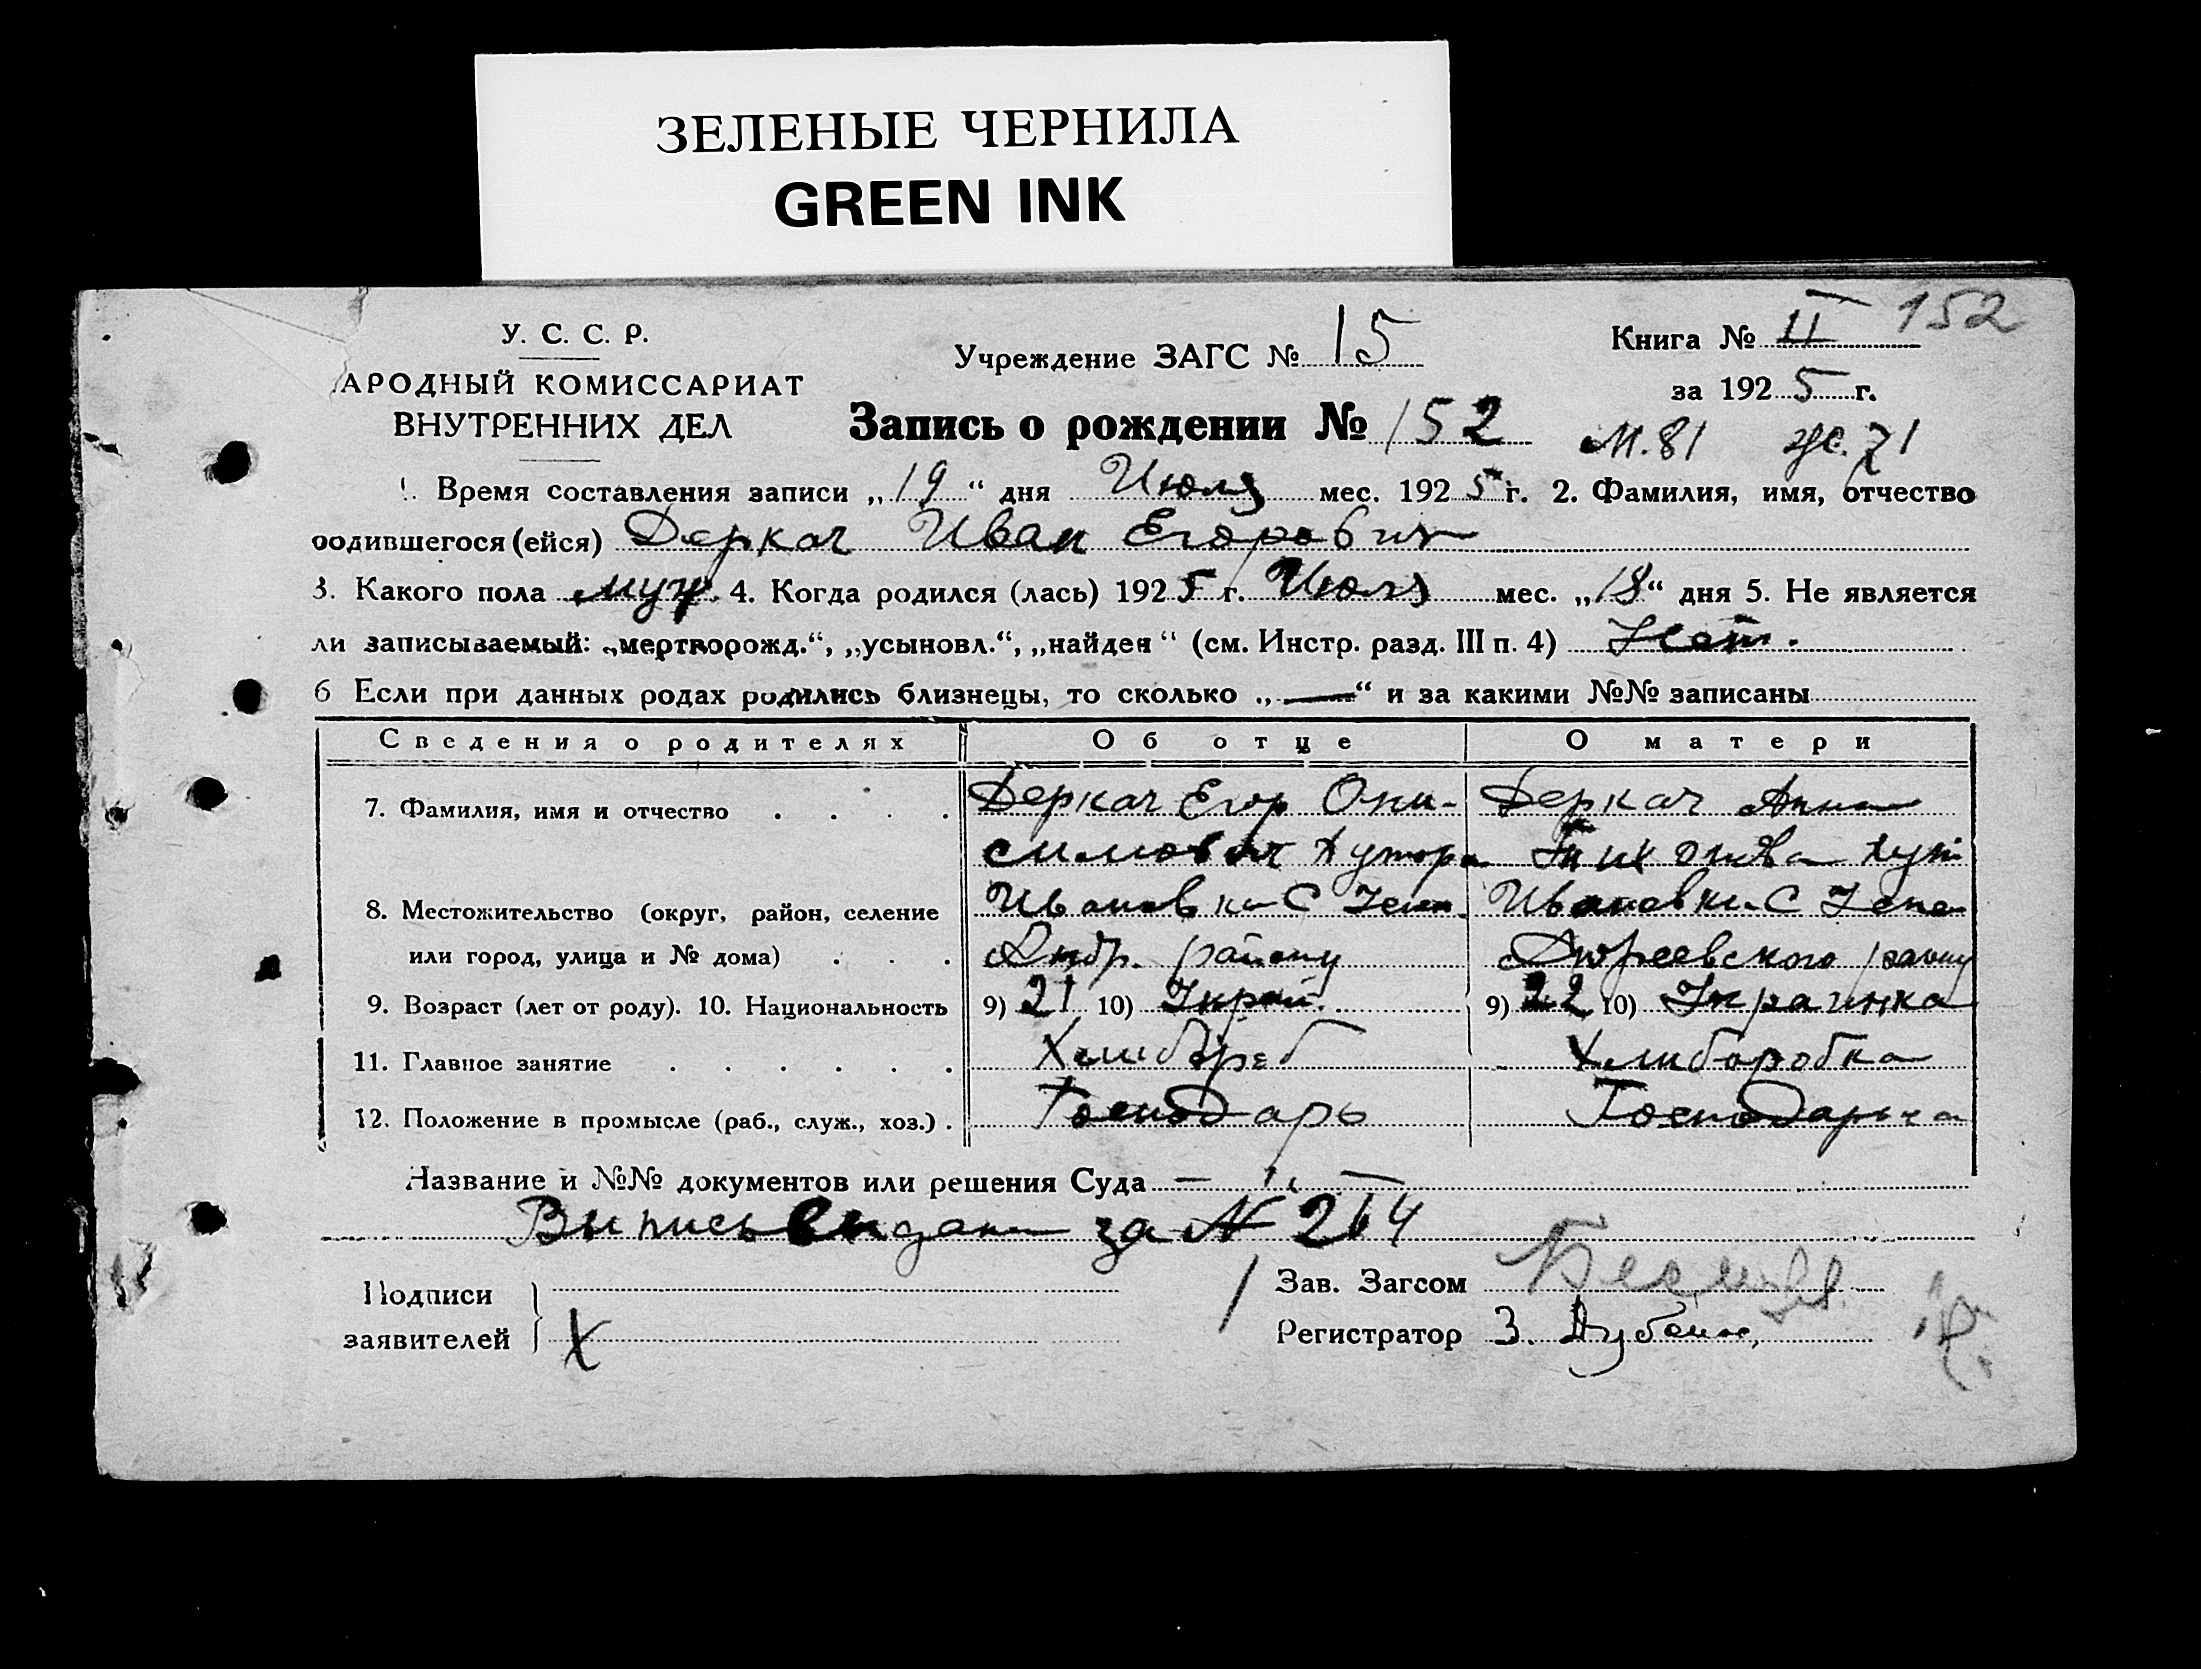 ЗЕЛЕНЫЕ ЧЕРНИЛА
GREEN INK
152
У. С. С. Р.
АРОДНЫЙ КОМИССАРИАТ
ВНУТРЕННИХ ДЕЛ
Учреждение ЗАГС № 15
Книга № II
за 1925 г.
Запись о рождении № 152
М. 81 Ж. 71
1. Время составления записи „19“ дня Июля мес. 1925 г. 2. Фамилия, имя, отчество
родившегося (ейся) Деркач Иван Егорович
3. Какого пола муж. 4. Когда родился (лась) 1925 г. Июля мес. „18“ дня 5. Не является
ли записываемый: „мертворожд.“, „усыновл.“, „найден“ (см. Инстр. разд. III п. 4) Нет.
6 Если при данных родах родились близнецы, то сколько „—“ и за какими №№ записаны
Сведения о родителях Об отце О матери
7. Фамилия, имя и отчество Деркач Егор Они- Деркач Анна
симович Хутора Хут
8. Местожительство (округ, район, селение Ивановка С Ивановка С
или город, улица и № дома) району
9. Возраст (лет от роду). 10. Национальность 9) 21 10) Украи. 9) 22 10) Украинка
11. Главное занятие Хлибороб Хлиборобка
12. Положение в промысле (раб., служ., хоз.) Господарь Господарыча
Название и №№ документов или решения Суда —
Выпись выдана за №
Подписи
заявителей
X
Зав. Загсом
Регистратор З.